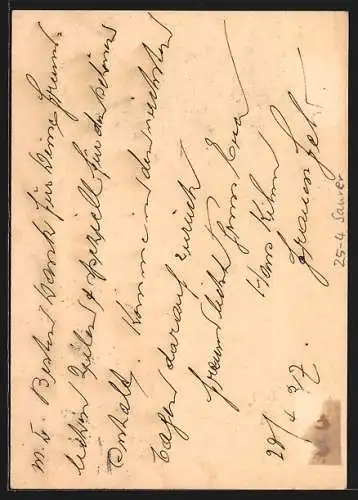 M. L. Besten Dank für Deine freund-
lichen Zeilen & speziell für den schönen
Inhalt. Komme in den nächsten
Tagen darauf zurück
freundlichst Grüsst Euch
Hans
Frauenfeld.
29/4 37.
25-4 Saurer